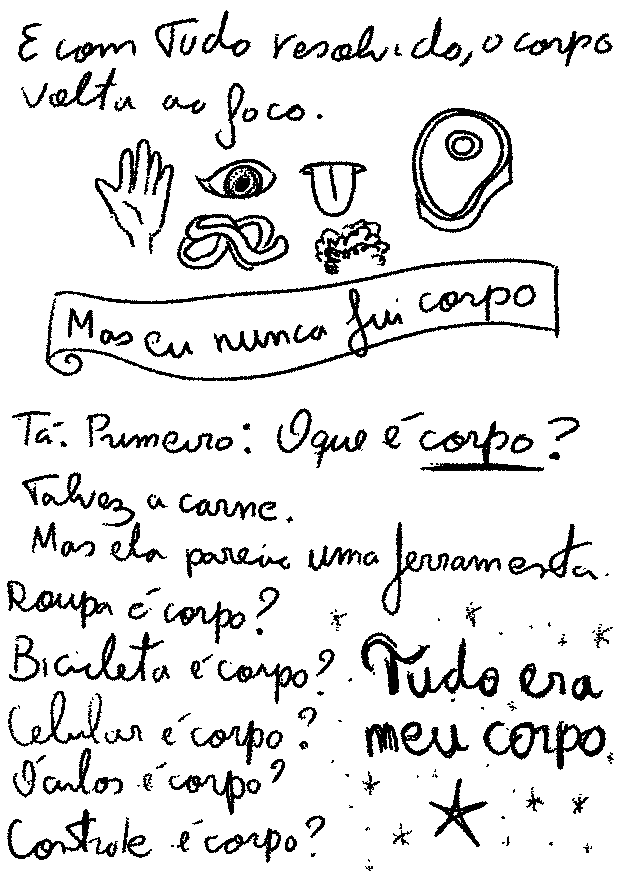 E com Tudo resolvido, o corpo
volta ao foco.
Mas eu nunca fui corpo
Tá. Primeiro: O que é corpo?
Talvez a carne.
Mas ela parecia uma ferramenta.
Roupa é corpo?
Bicicleta é corpo?
Celular é corpo?
Óculos é corpo?
Controle é corpo?
Tudo era
meu corpo